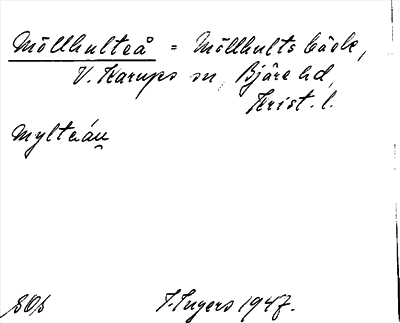 Möllhulteå = Möllhults bäck,
V. Karups sn, Bjäre hd,
Krist. l.
myltęáu̯
SOs I. Ingers 1947.